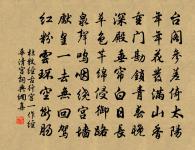 台閣參差倚太陽
年年花發滿山香
重門勘鎖青春晚
深殿垂簾白日長
草色芊綿侵御路
泉聲嗚咽繞宮牆
皇一去無回駕
紅粉雲環空斷腸
杜牧經古行宮一作經
華清宮詞典網集